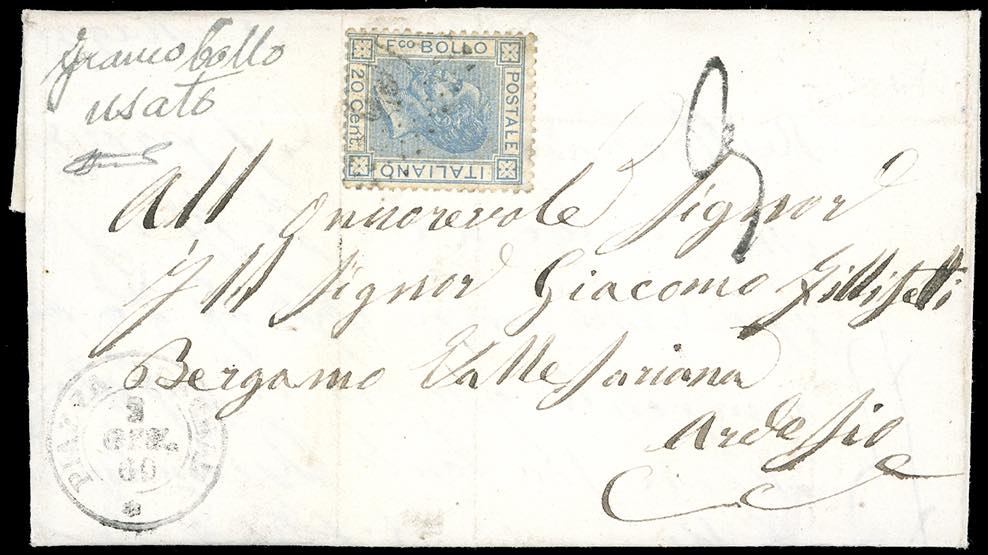 Franco bollo
usato
F.co BOLLO
POSTALE
ITALIANO
20 Cent.
3
All Onnorevole Signor
Ill Signor Giacomo Fillisetti
Bergamo Valle Sariana
Ardesio
PIAZZA
3
GEN.